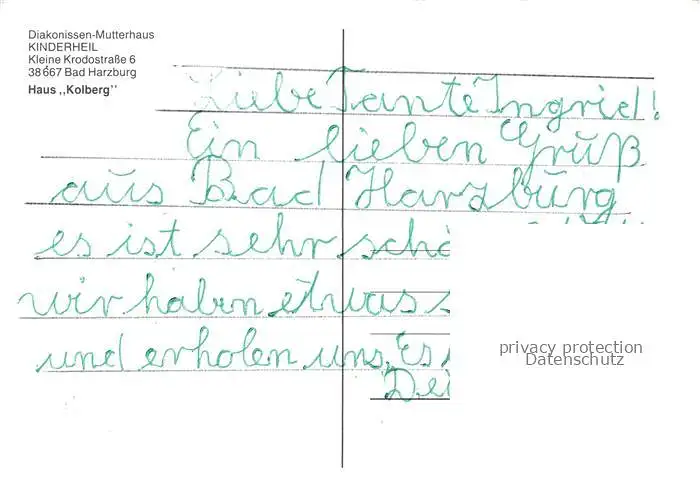 Diakonissen-Mutterhaus
KINDERHEIL
Kleine Krodostraße 6
38667 Bad Harzburg
Haus ,,Kolberg"
Liebe Tante Ingrid!
Ein lieben Gruß
aus Bad Harzburg
es ist sehr schö
wir haben etwas s
und erholen uns. Es
privacy protection
Datenschutz